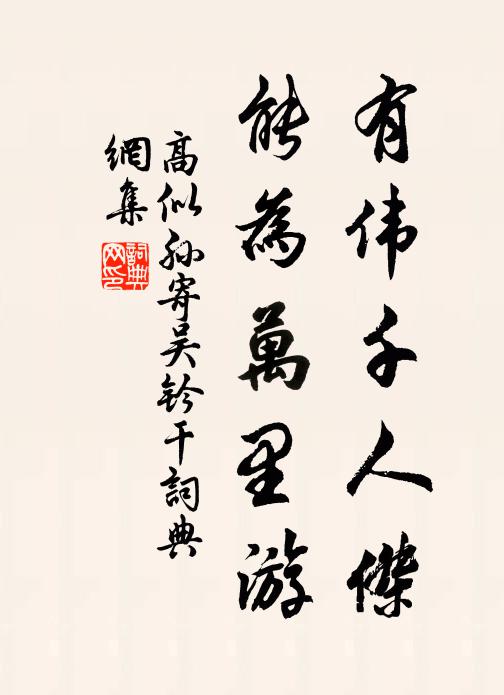 有伟千人傑
能為萬里游
高似孙寄吴钤干詞典
網集
詞典
网印